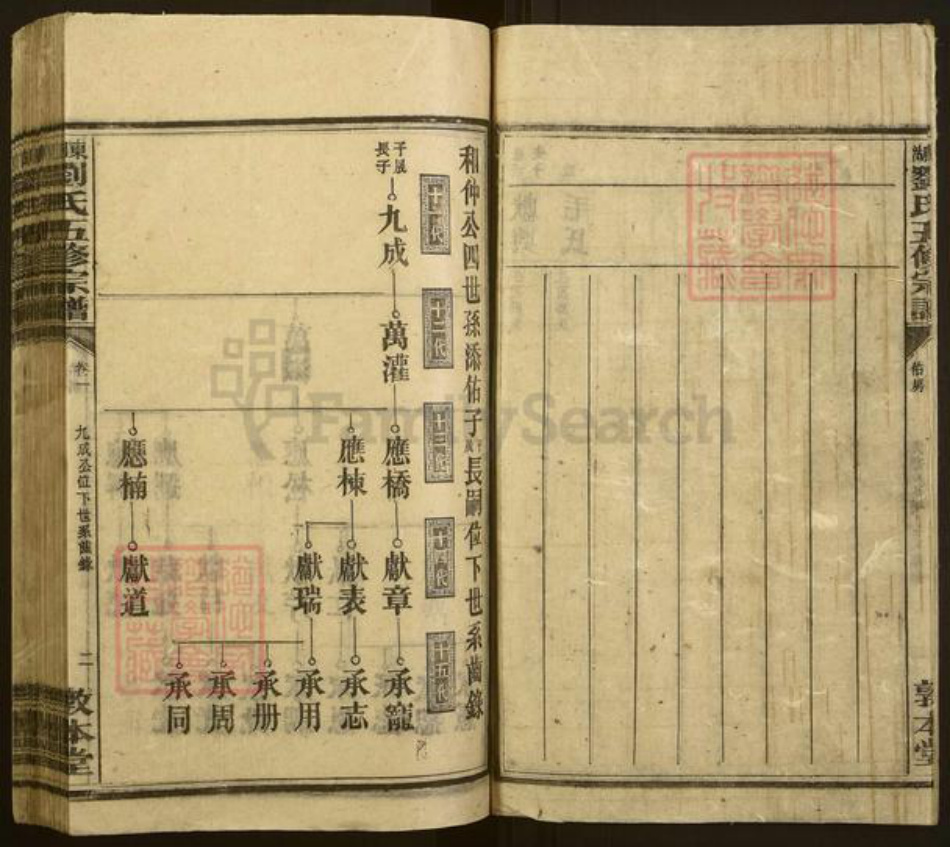 劉氏五修宗譜
敦本堂
和仲公四世孫添佑子長嗣位下世系齒錄
十一代
十二代
十三代
十四代
十五代
長子
九成
萬灌
應橋
獻章
承寵
應棟
獻表
承志
獻瑞
承用
承册
承周
承同
應楠
獻道
劉氏五修宗譜
卷一
九成公位下世系齒錄
二
敦本堂
FamilySearch